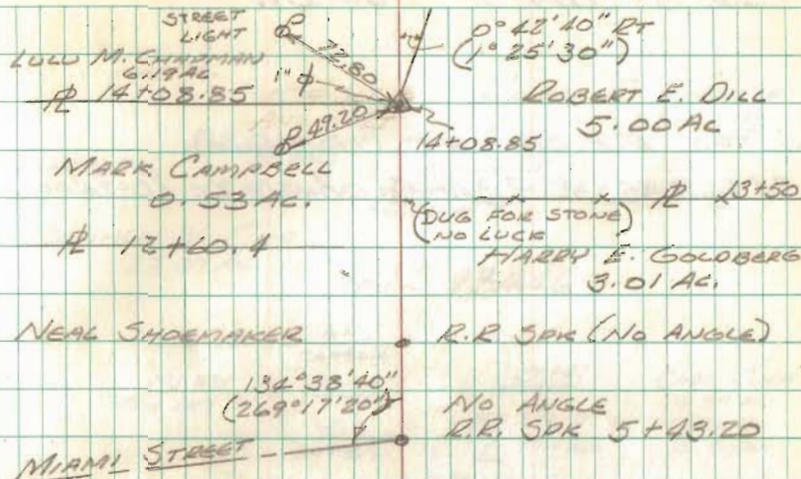 STREET
LIGHT
P
0°42'40" RT
(1°25'30")
72.80
LULU M. CHAPMAN
6.19 AC
1" ⌀
ROBERT E. DILL
5.00 AC
℄ 14+08.85
49.20
P
14+08.85
MARK CAMPBELL
0.53 AC.
℄ 13+50
(DUG FOR STONE)
NO LUCK
℄ 12+60.4
HARRY E. GOLDBERG
3.01 AC.
NEAL SHOEMAKER
R.R SPK (NO ANGLE)
134°38'40"
(269°17'20")
NO ANGLE
R.R. SPK 5+43.20
MIAMI STREET